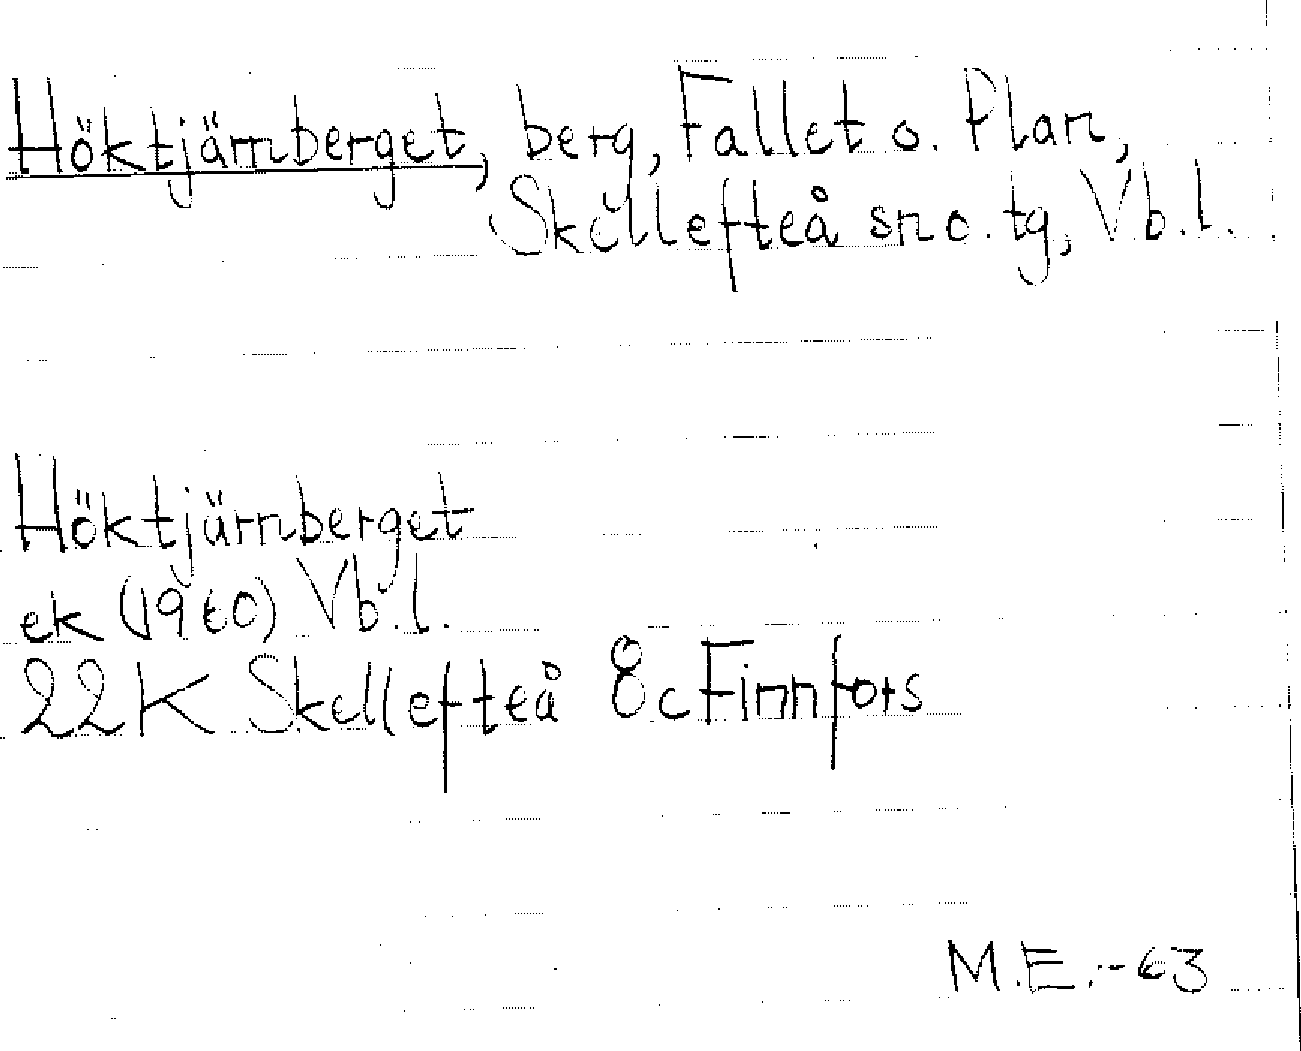 Höktjärnberget, berg, Fallet o. Plan,
Skellefteå sn o. tg, Vb.l.
Höktjärnberget
ek (1960) Vb.l.
22K Skellefteå 8c Finnfors
M.E.-63